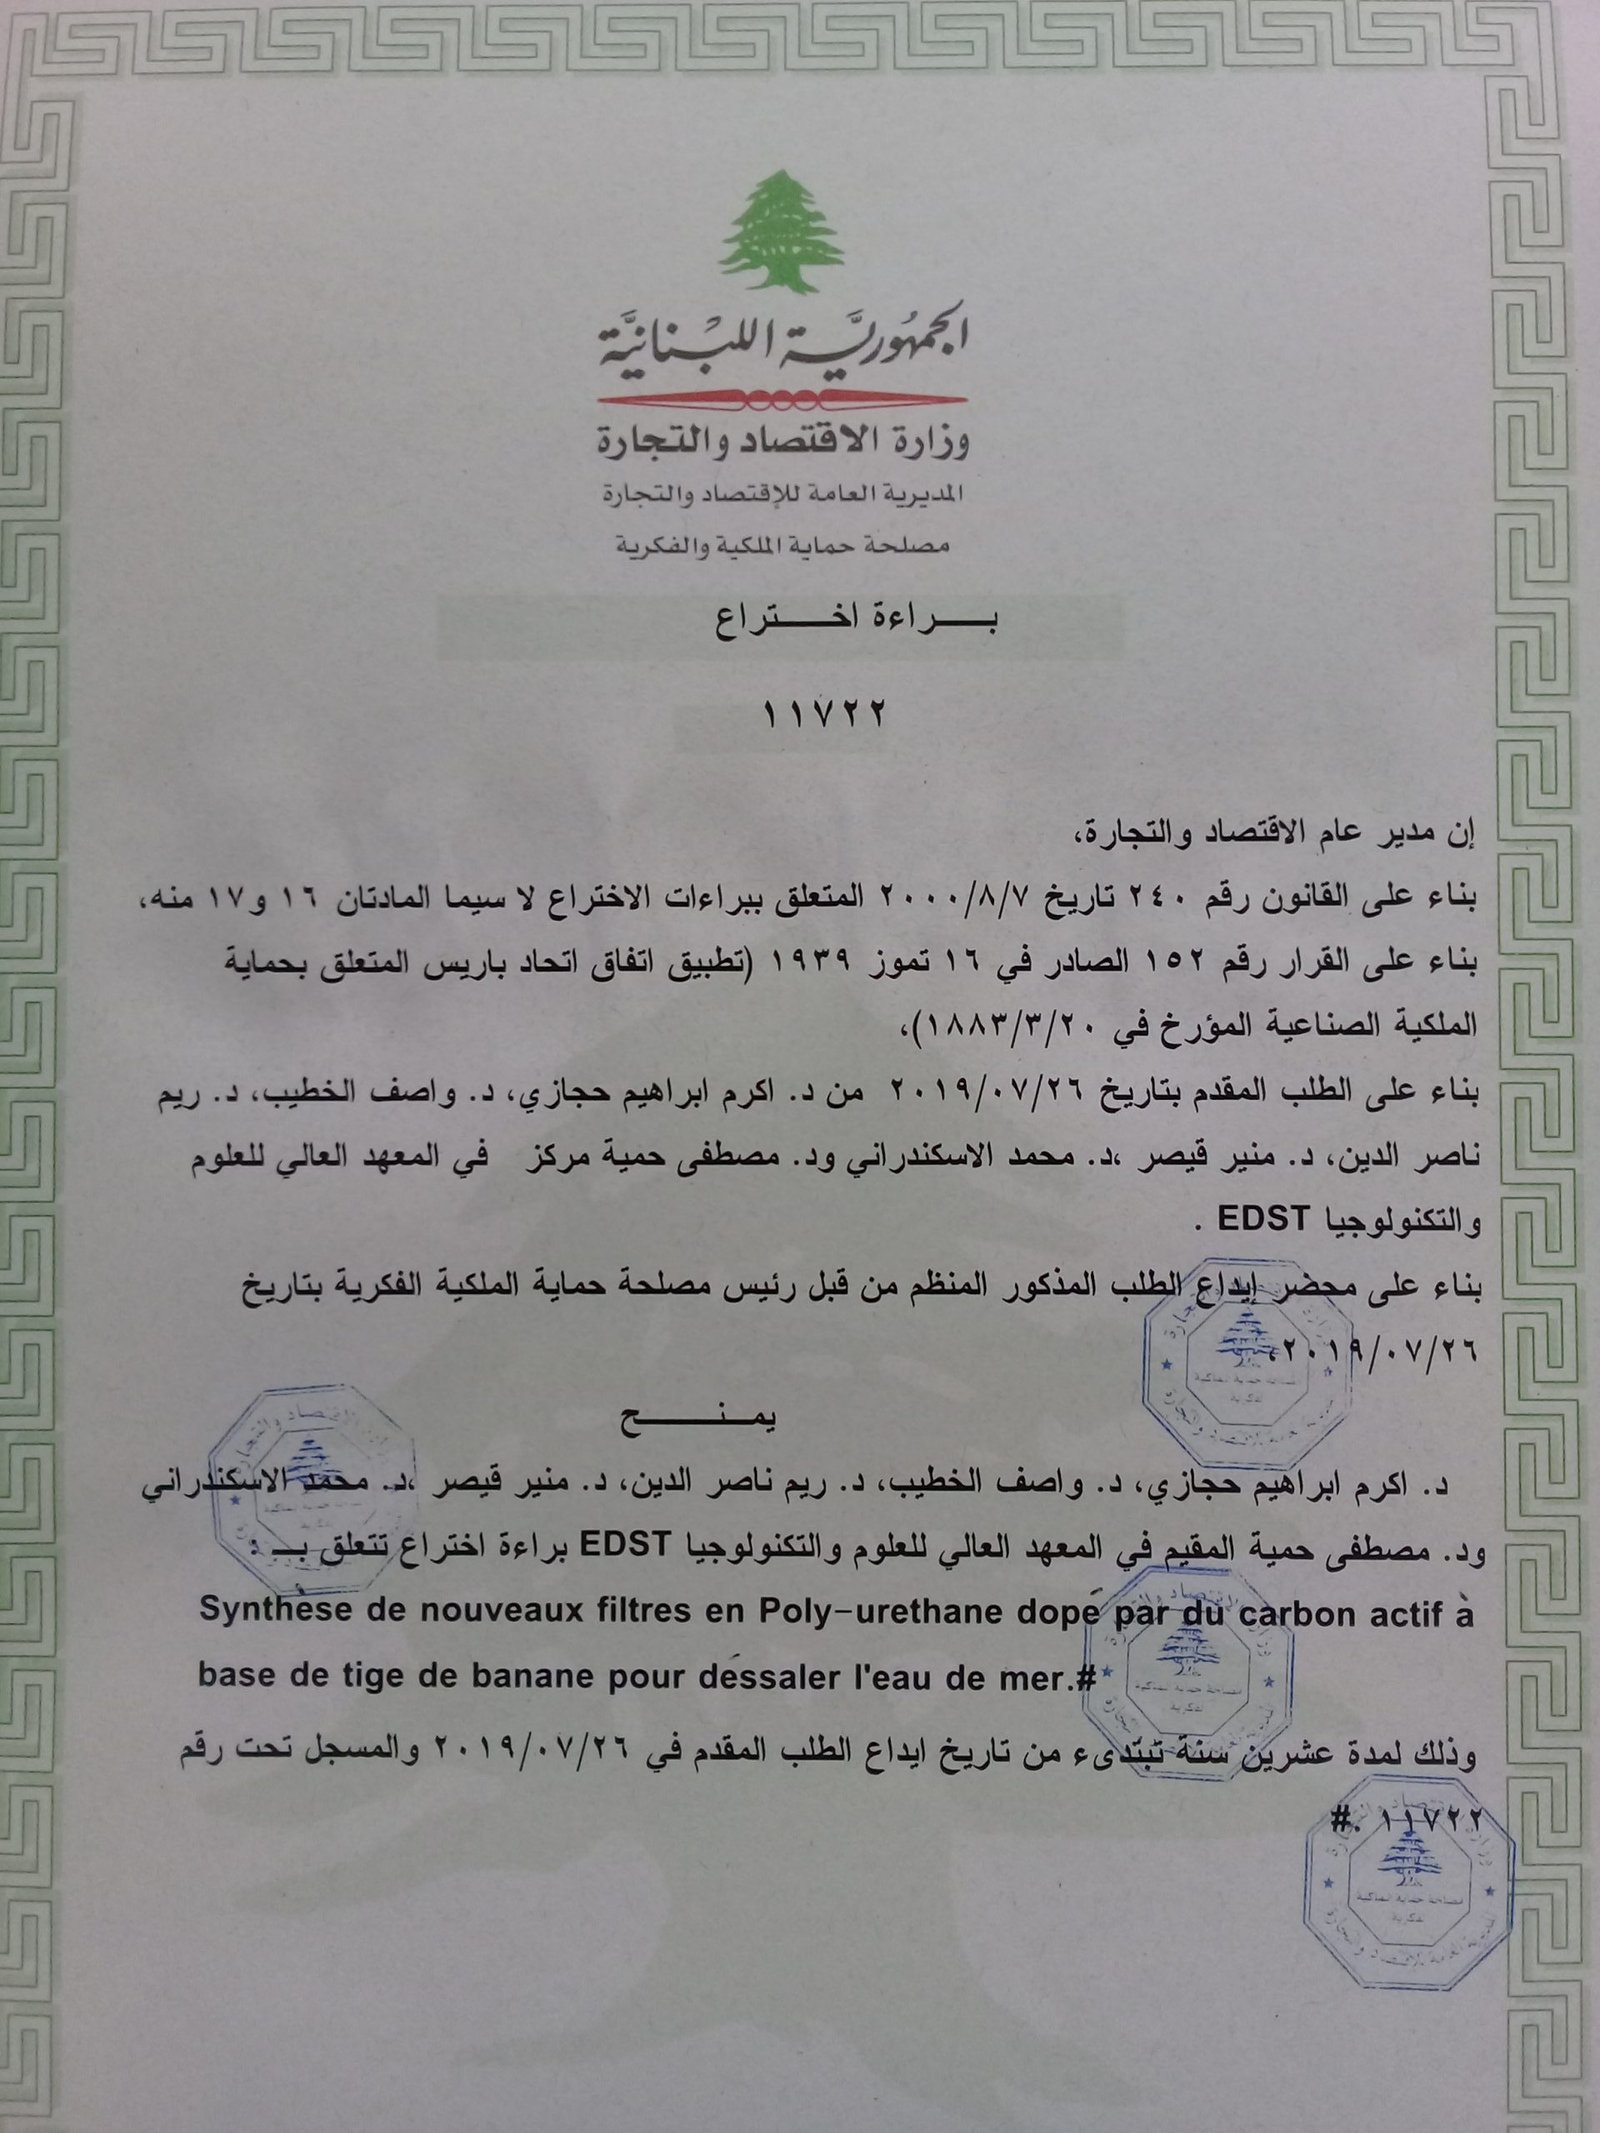 الجمهوريَّة اللبنانيَّة
وزارة الاقتصاد والتجارة
المديرية العامة للإقتصاد والتجارة
مصلحة حماية الملكية والفكرية
بـــراءة اخـــتراع
١١٧٢٢
إن مدير عام الاقتصاد والتجارة،
بناء على القانون رقم ٢٤٠ تاريخ ٢٠٠٠/٨/٧ المتعلق ببراءات الاختراع لا سيما المادتان ١٦ و١٧ منه،
بناء على القرار رقم ١٥٢ الصادر في ١٦ تموز ١٩٣٩ (تطبيق اتفاق اتحاد باريس المتعلق بحماية
الملكية الصناعية المؤرخ في ١٨٨٣/٣/٢٠)،
بناء على الطلب المقدم بتاريخ ٢٠١٩/٠٧/٢٦ من د. اكرم ابراهيم حجازي، د. واصف الخطيب، د. ريم
ناصر الدين، د. منير قيصر ،د. محمد الاسكندراني ود. مصطفى حمية مركز في المعهد العالي للعلوم
والتكنولوجيا EDST .
بناء على محضر إيداع الطلب المذكور المنظم من قبل رئيس مصلحة حماية الملكية الفكرية بتاريخ
٢٠١٩/٠٧/٢٦،
يمـــنـــــح
د. اكرم ابراهيم حجازي، د. واصف الخطيب، د. ريم ناصر الدين، د. منير قيصر ،د. محمد الاسكندراني
ود. مصطفى حمية المقيم في المعهد العالي للعلوم والتكنولوجيا EDST براءة اختراع تتعلق بـــ :
Synthèse de nouveaux filtres en Poly-urethane dopé par du carbon actif à
base de tige de banane pour déssaler l'eau de mer.#
وذلك لمدة عشرين سنة تبتدىء من تاريخ ايداع الطلب المقدم في ٢٠١٩/٠٧/٢٦ والمسجل تحت رقم
١١٧٢٢ .#